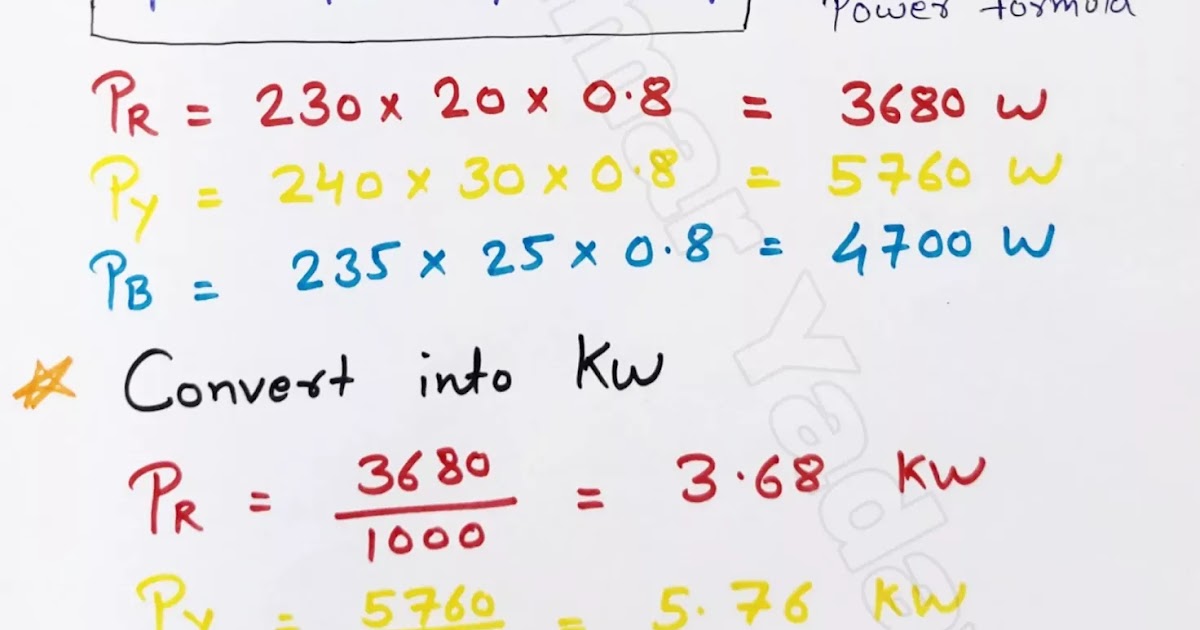 Power formula
PR = 230 × 20 × 0.8 = 3680 W
PY = 240 × 30 × 0.8 = 5760 W
PB = 235 × 25 × 0.8 = 4700 W
Convert into Kw
PR = 3680/1000 = 3.68 Kw
PY = 5760 = 5.76 Kw
mar Yada